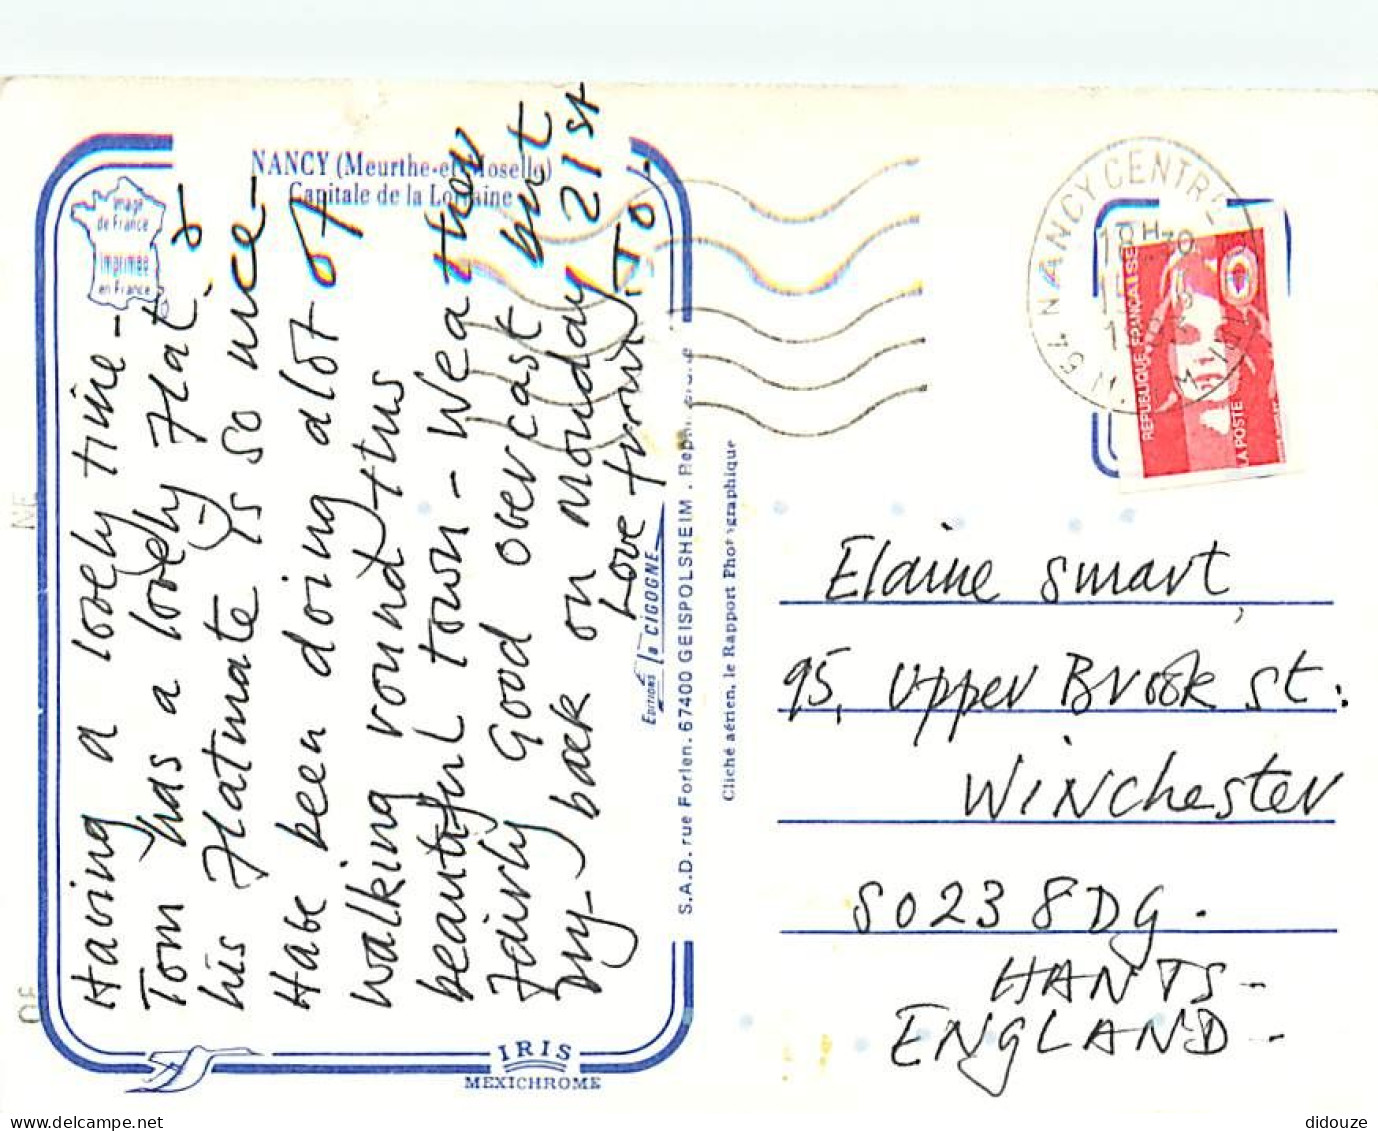 NANCY (Meurthe-et-Moselle)
Capitale de la Lorraine
Image
de France
imprimée
en France
Having a lovely time -
Tom has a lovely Flat. &
his Flatmate is so nice -
Have been doing alot of
walking round this
beautiful town - Weather
Fairly Good overcast but
Dry - back on monday 21st
Love from
EDITIONS la CIGOGNE
S.A.D. rue Forlen. 67400 GEISPOLSHEIM .
Cliché aérien, le Rapport Photographique
IRIS
MEXICHROME
NANCY CENTRE
54
18H30
REPUBLIQUE FRANÇAISE
LA POSTE
Elaine Smart,
95, Upper Brook St.
Winchester
SO23 8DG.
HANTS -
ENGLAND -
didouze